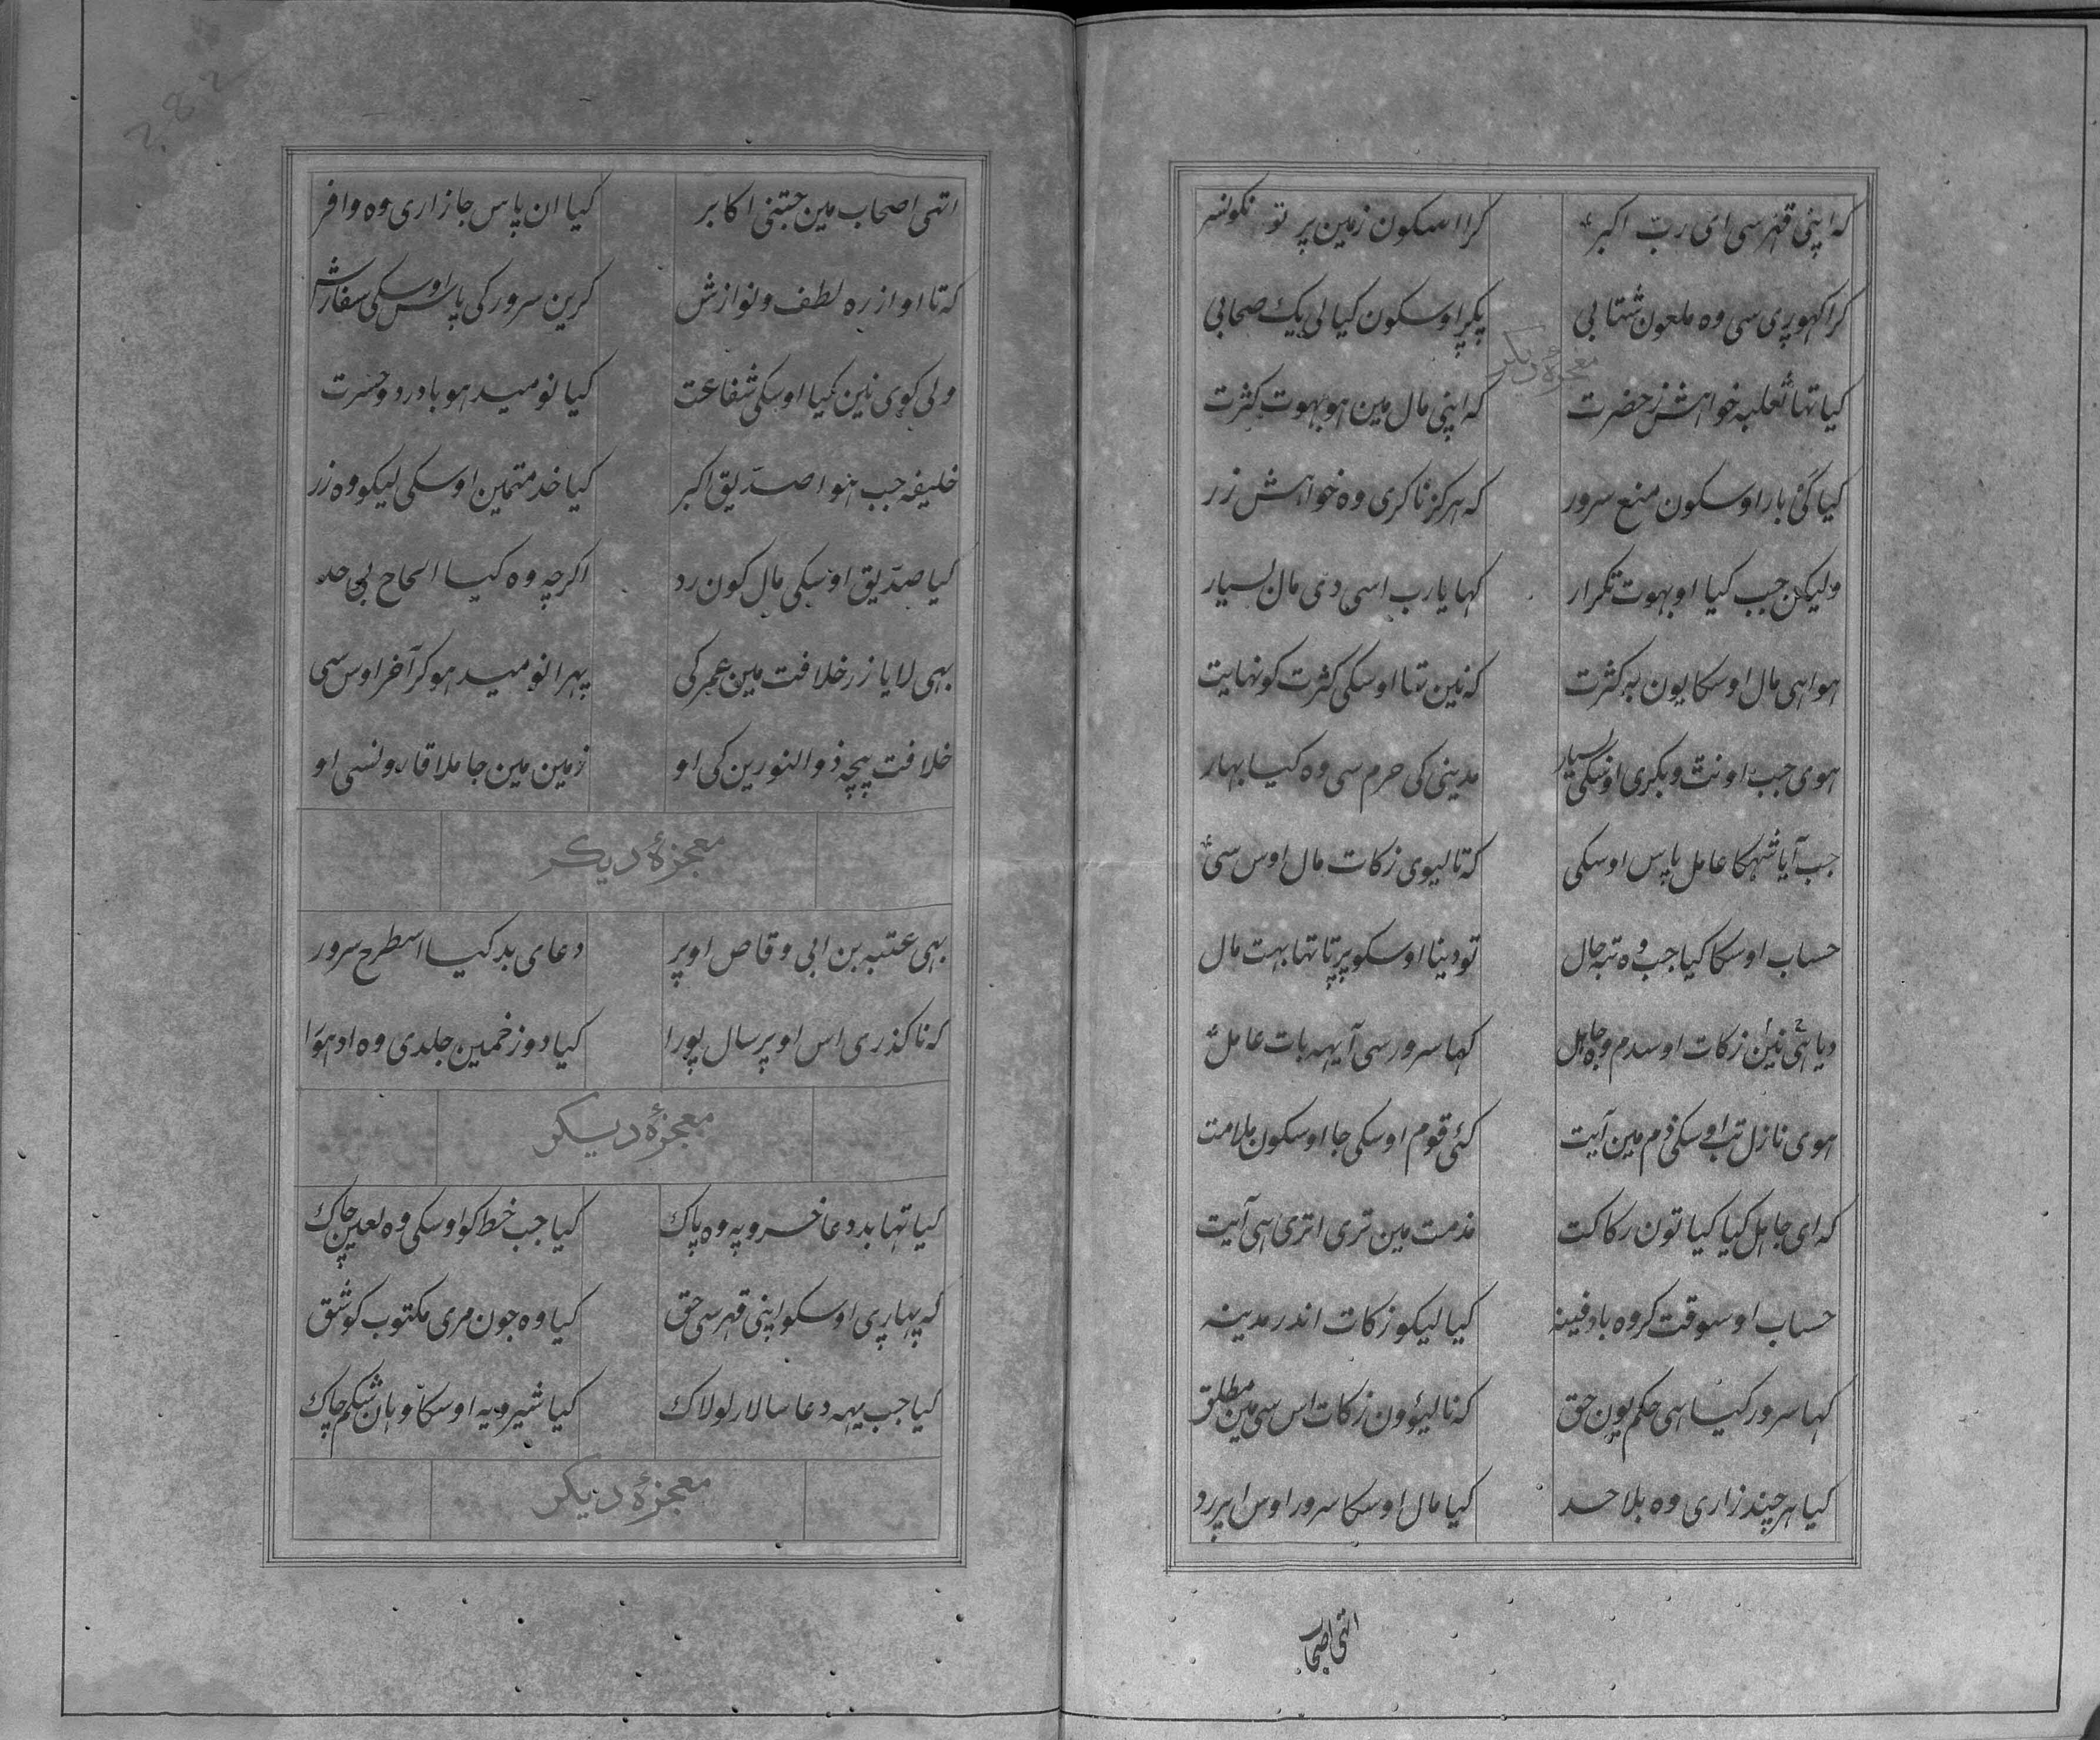 کہ اپنی قہر سی ای ربّ اکبر کرا اسکون زمین پر تو نکونسر
کرا کہوری سی وہ ملعون شتابی پکر اوسکون کیا لی یک صحابی
معجزۂ دیکر
کیا تہا ثعلبہ خواہش ز حضرت کہ اپنی مال مین ہو بہوت کثرت
کیا کئی بار اوسکون منع سرور کہ ہرکز نا کری وہ خواہش زر
ولیکن جب کیا او بہوت تکرار کہا یا رب اسی دی مال بسیار
ہوا ہی مال اوسکا یون بہ کثرت کہ نین تہا اوسکی کثرت کو نہایت
ہوی جب اونت و بکری اوسکی بسیار مدینی کی حرم سی وہ کیا بہار
جب آیا شہکا عامل پاس اوسکی کہ تا لیوی زکات مال اوس سی
حساب اوسکا کیا جب وہ تبہ حال تو دینا اوسکو پرتا تہا بہت مال
دیا ہی نین زکات اوسدم وہ جاہل کہا سرور سی آ یہہ بات عامل
ہوی نازل تب اوسکی ذم مین آیت کئی قوم اوسکی جا اوسکون ملامت
کہ ای جاہل کیا کیا تون رکاکت مذمت مین تری اتری ہی آیت
حساب اوسوقت کر وہ با دفینہ کیا لیکو زکات اندر مدینہ
کہا سرور کیا ہی حکم یون حق کہ نا لیؤون زکات اس سی مین مطلق
کیا ہر چند زاری وہ بلا حد کیا مال اوسکا سرور اوس اپر رد
اتہی اصحاب
اتہی اصحاب مین جتنی اکابر کیا ان پاس جا زاری وہ وافر
کہ تا او از رہ لطف و نوازش کرین سرور کی پاس اوسکی سفارش
ولی کوی نین کیا اوسکی شفاعت کیا نومید ہو با درد و حسرت
خلیفہ جب ہوا صدّیق اکبر کیا خدمتمین اوسکی لیکو وہ زر
کیا صدّیق اوسکی مال کون رد اکرچہ وہ کیا الحاح بی حد
بہی لایا زر خلافت مین عمر کی پہرا نومید ہو کر آخر اوس سی
خلافت بیچہ ذوالنورین کی او زمین مین جا ملا قارونسی او
معجزۂ دیکر
بہی عتبہ بن ابی وقاص اوپر دعای بد کیا اسطرح سرور
کہ نا کذری اس اوپر سال پورا کیا دوزخمین جلدی وہ ادہوَا
معجزۂ دیکر
کیا تہا بد دعا خسرو پہ وہ پاک کیا جب خط کو اوسکی وہ لعین چاک
کہ پہاری اوسکو اپنی قہر سی حق کیا وہ جون مری مکتوب کو شق
کیا جب یہہ دعا سالار لولاک کیا شیرویہ اوسکا وہان شکم چاک
معجزۂ دیکر